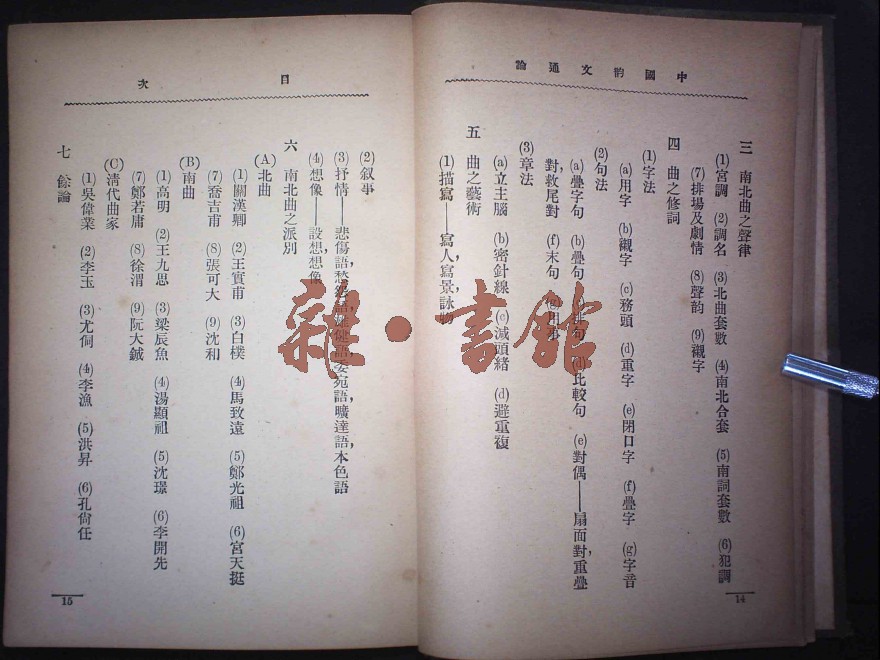 中國韵文通論
三　南北曲之聲律
(1)宮調　(2)調名　(3)北曲套數　(4)南北合套　(5)南詞套數　(6)犯調
(7)排場及劇情　(8)聲韵　(9)襯字
四　曲之修詞
(1)字法
(a)用字　(b)襯字　(c)務頭　(d)重字　(e)閉口字　(f)疊字　(g)字音
(2)句法
(a)疊字句　(b)疊句　(c)排句　(d)比較句　(e)對偶——扇面對，重疊
對，救尾對　(f)末句　(g)用事
(3)章法
(a)立主腦　(b)密針線　(c)減頭緒　(d)避重複
五　曲之藝術
(1)描寫——寫人，寫景，詠物
14
目次
(2)叙事
(3)抒情——悲傷語，愁怨語，雄健語，委宛語，曠達語，本色語
(4)想像——設想，想像
六　南北曲之派別
(A)北曲
(1)關漢卿　(2)王實甫　(3)白樸　(4)馬致遠　(5)鄭光祖　(6)宮天挺
(7)喬吉甫　(8)張可大　(9)沈和
(B)南曲
(1)高明　(2)王九思　(3)梁辰魚　(4)湯顯祖　(5)沈璟　(6)李開先
(7)鄭若庸　(8)徐渭　(9)阮大鋮
(C)清代曲家
(1)吳偉業　(2)李玉　(3)尤侗　(4)李漁　(5)洪昇　(6)孔尙任
七　餘論
15
雜·書館